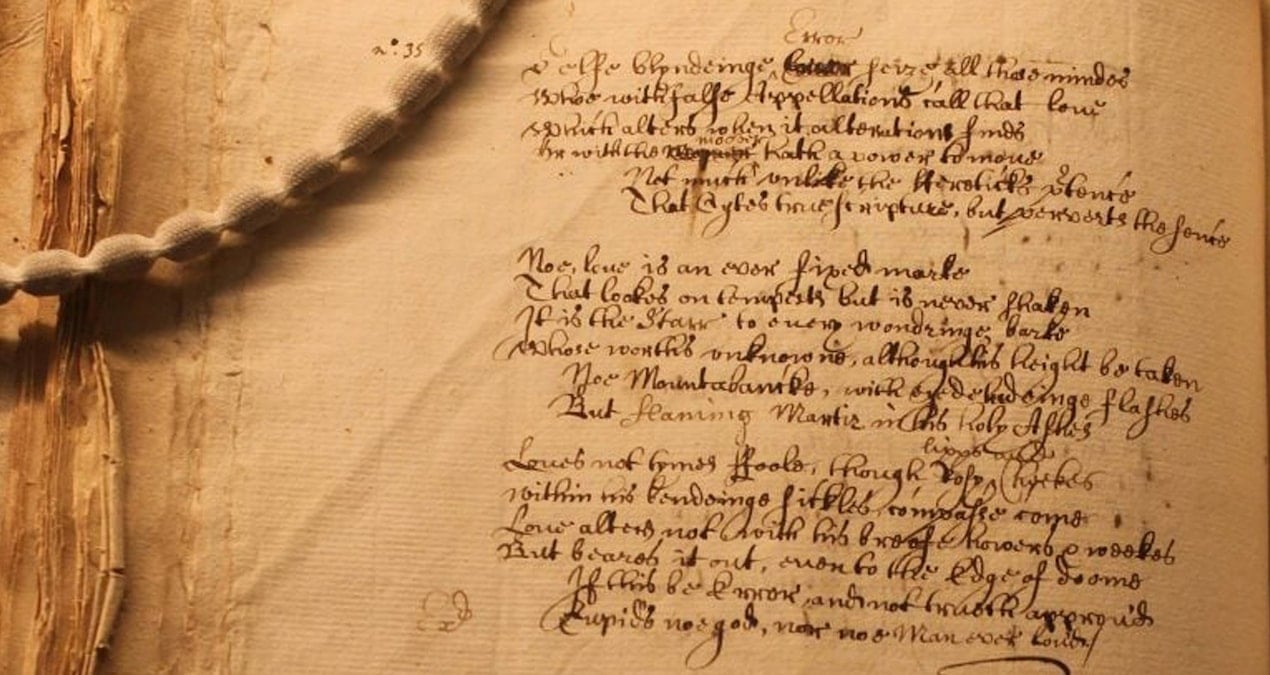 Error
n: 35
Selfe blyndeinge seize all those mindes
Whoe with false Appellations call that love
Which alters when it alterations finds
mover
Or with the hath a power to move
Not much unlike the Hereticks ptence
That Cytes true scripture, but perverts the sence
Noe, love is an ever fixed marke
That lookes on tempests but is never shaken
It is the Starr to every wondringe barke
Whose worths unknowne, although his height be taken
Noe Mountebancke, with eye deludeinge flashes
But flaming Martir in his holy Ashes
lipps and
Loves not tymes ffoole, though Rosy Cheekes
within his bendeinge sickles compasse come
Love alters not with his breife howers & weekes
But beares it out, even to the Edge of doome
If this be Error and not truth approv'd
Cupids noe god, nor noe Man ever lov'd